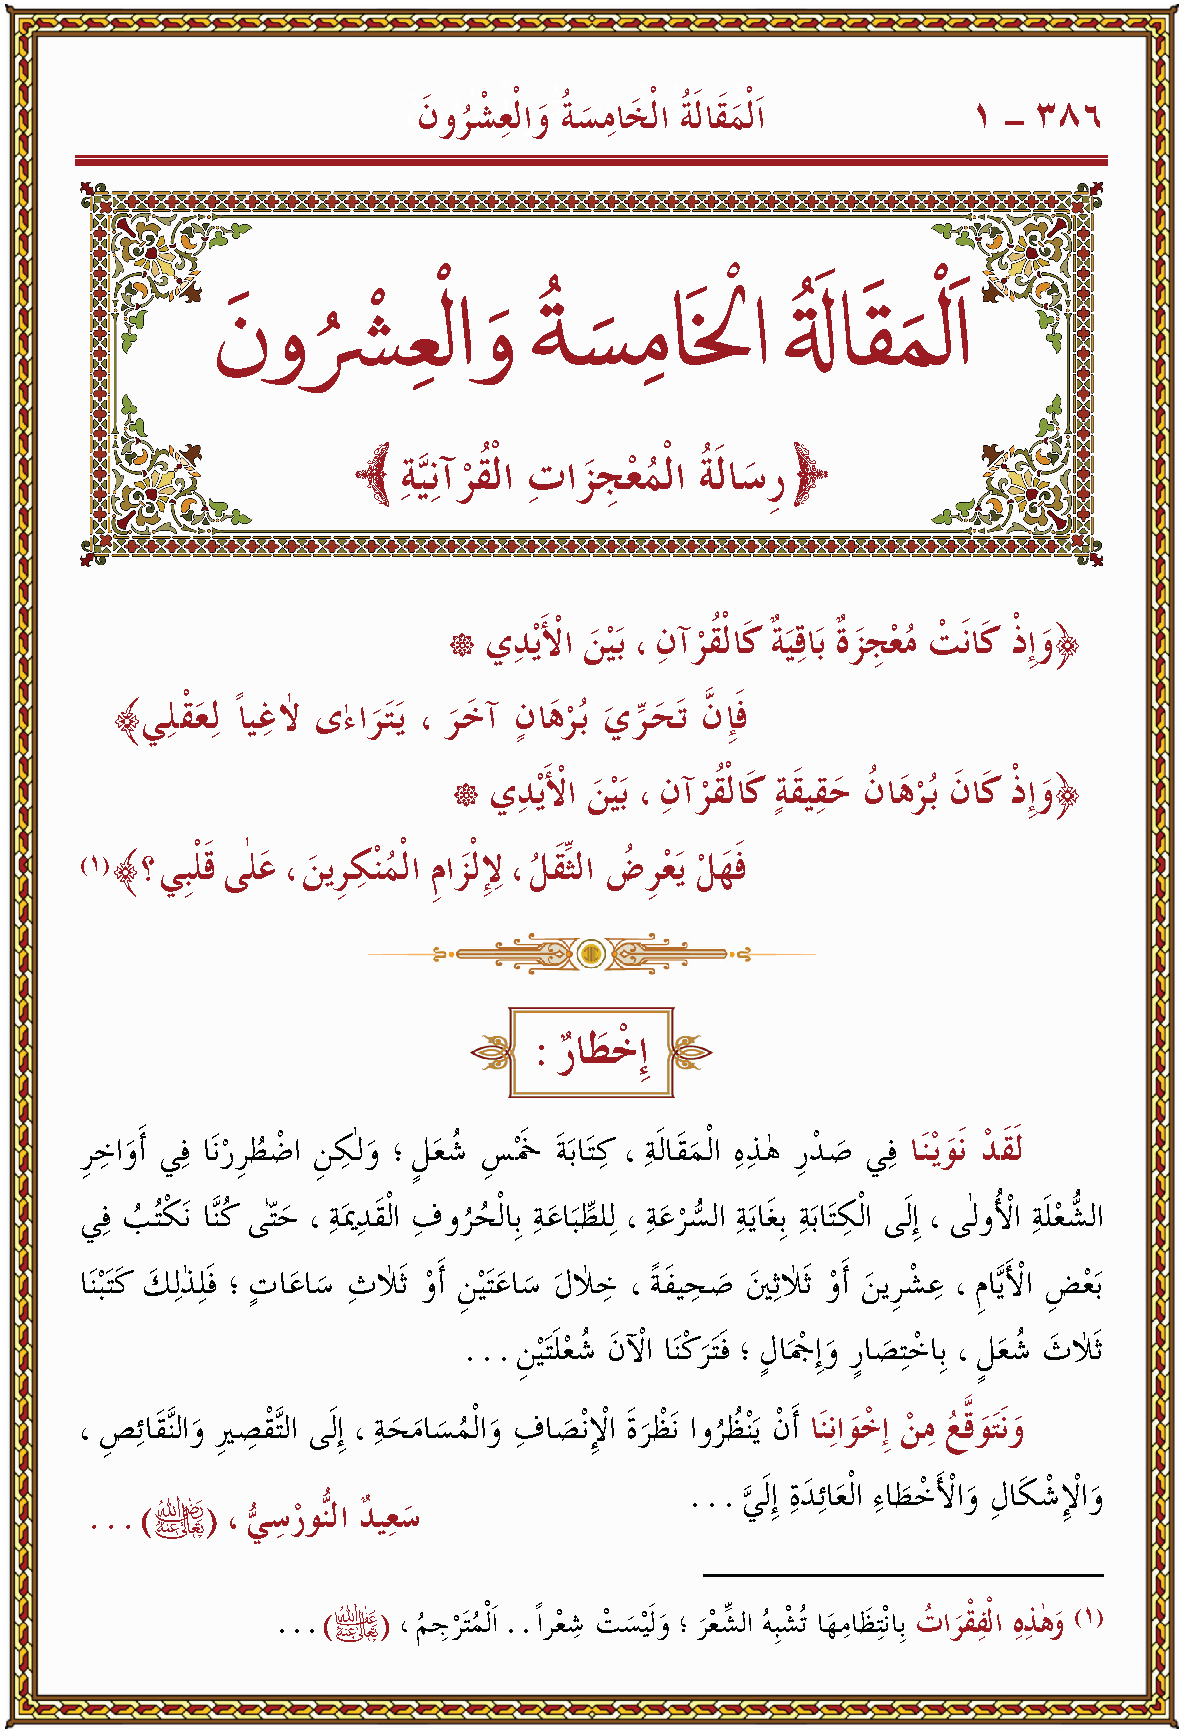 ٣٨٦ – ١ اَلْمَقَالَةُ الْخَامِسَةُ وَالْعِشْرُونَ
اَلْمَقَالَةُ الْخَامِسَةُ وَالْعِشْرُونَ
﴿رِسَالَةُ الْمُعْجِزَاتِ الْقُرْآنِيَّةِ﴾
﴿وَإِذْ كَانَتْ مُعْجِزَةٌ بَاقِيَةٌ كَالْقُرْآنِ ، بَيْنَ الْأَيْدِي ۞
فَإِنَّ تَحَرِّيَ بُرْهَانٍ آخَرَ ، يَتَرَاءٰى لَاغِياً لِعَقْلِي﴾
﴿وَإِذْ كَانَ بُرْهَانُ حَقِيقَةٍ كَالْقُرْآنِ ، بَيْنَ الْأَيْدِي ۞
فَهَلْ يَعْرِضُ الثِّقَلُ ، لِإِلْزَامِ الْمُنْكِرِينَ ، عَلٰى قَلْبِي ؟﴾(١)
إِخْطَارٌ :
لَقَدْ نَوَيْنَا فِي صَدْرِ هٰذِهِ الْمَقَالَةِ ، كِتَابَةَ خَمْسِ شُعَلٍ ؛ وَلٰكِنِ اضْطُرِرْنَا فِي أَوَاخِرِ
الشُّعْلَةِ الْأُولٰى ، إِلَى الْكِتَابَةِ بِغَايَةِ السُّرْعَةِ ، لِلطِّبَاعَةِ بِالْحُرُوفِ الْقَدِيمَةِ ، حَتّٰى كُنَّا نَكْتُبُ فِي
بَعْضِ الْأَيَّامِ ، عِشْرِينَ أَوْ ثَلَاثِينَ صَحِيفَةً ، خِلَالَ سَاعَتَيْنِ أَوْ ثَلَاثِ سَاعَاتٍ ؛ فَلِذٰلِكَ كَتَبْنَا
ثَلَاثَ شُعَلٍ ، بِاخْتِصَارٍ وَإِجْمَالٍ ؛ فَتَرَكْنَا الْآنَ شُعْلَتَيْنِ . . .
وَنَتَوَقَّعُ مِنْ إِخْوَانِنَا أَنْ يَنْظُرُوا نَظْرَةَ الْإِنْصَافِ وَالْمُسَامَحَةِ ، إِلَى التَّقْصِيرِ وَالنَّقَائِصِ ،
وَالْإِشْكَالِ وَالْأَخْطَاءِ الْعَائِدَةِ إِلَيَّ . . .
سَعِيدٌ النُّورْسِيُّ ، (رَضِيَ اللّٰهُ تَعَالٰى عَنْهُ) . . .
(١) وَهٰذِهِ الْفِقْرَاتُ بِانْتِظَامِهَا تُشْبِهُ الشِّعْرَ ؛ وَلَيْسَتْ شِعْراً . . اَلْمُتَرْجِمُ ، (عَفَا اللّٰهُ عَنْهُ) . . .